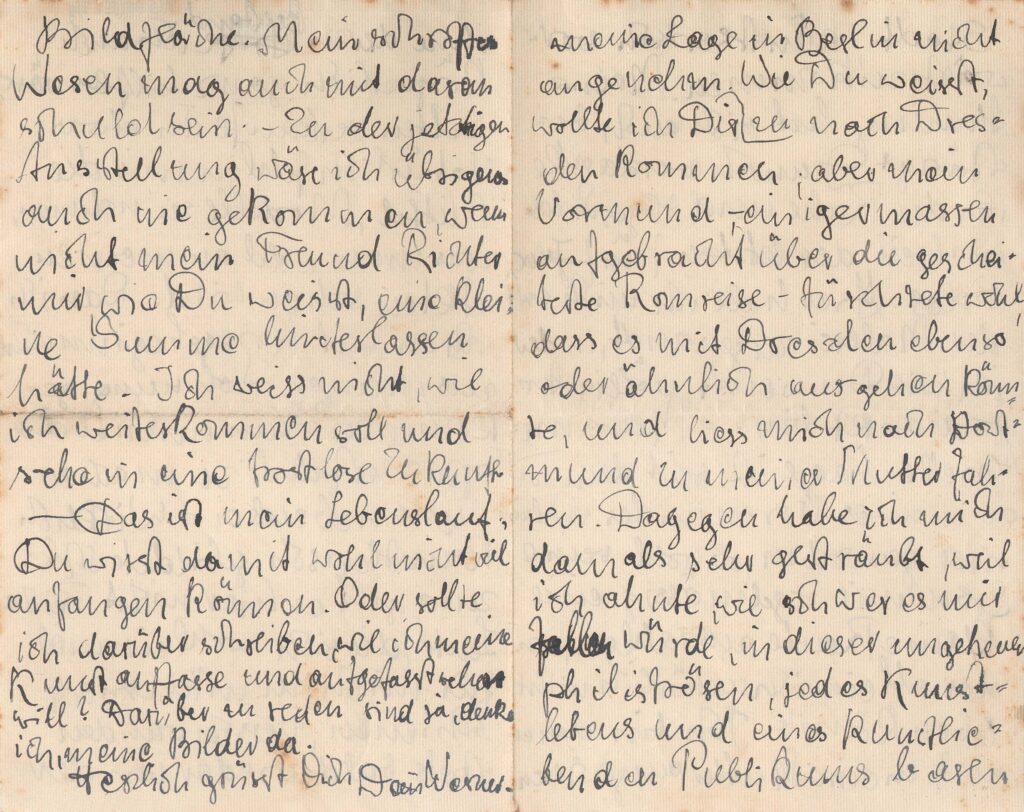 Bildfläche. Mein schroffes
Wesen mag auch mit daran
schuld sein. – Zu der jetzigen
Ausstellung wäre ich übrigens
auch nie gekommen, wenn
nicht mein Freund Richter
mir, wie Du weisst, eine klei-
ne Summe hinterlassen
hätte. Ich weiss nicht, wie
ich weiterkommen soll und
sehe in eine trostlose Zukunft.
— Das ist mein Lebenslauf.
Du wirst damit wohl nicht viel
anfangen können. Oder sollte
ich darüber schreiben, wie ich meine
Kunst auffasse und aufgefasst sehen
will? Darüber zu reden sind ja, denke
ich, meine Bilder da.
Herzlich grüsst Dich Dein Werner.
meine Lage in Berlin nicht
angenehm. Wie Du weisst,
wollte ich Dir zu nach Dres-
den kommen; aber mein
Vormund – einigermassen
aufgebracht über die geschei-
terte Romreise – fürchtete wohl,
dass es mit Dresden ebenso
oder ähnlich ausgehen könn-
te, und liess mich nach Dort-
mund zu meiner Mutter fah-
ren. Dagegen habe ich mich
damals sehr gesträubt, weil
ich ahnte, wie schwer es mir
fallen würde, in dieser ungeheuer
philiströsen, jedes Kunst-
lebens und eines kunstlie-
benden Publikums baren